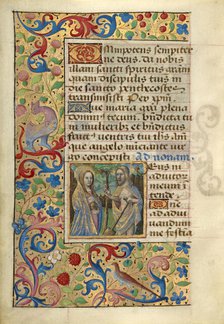 Omnipotens sempiter
ne deus. da nobis
illam sancti spiritus gram
quam discipulis tuis in
die sancto penthecostes
transmisisti Per xpm
Aue maria gra plena
tecum: bndicta tu
in mulierib; et bndictus
fructus uentris tui ihs
que angelo
go concepisti ad nonam.
Deus in
adiutor
meum in
tende.
Dne ad adiu
uandum
me festia